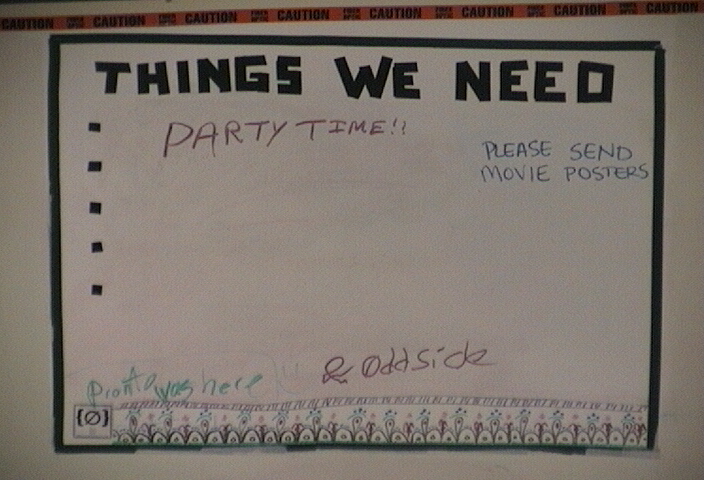 CAUTION CAUTION CAUTION CAUTION CAUTION CAUTION CAUTION CAUTION
THINGS WE NEED
PARTY TIME!!
PLEASE SEND
MOVIE POSTERS
& Oddside
Pronto was here
{Ø}